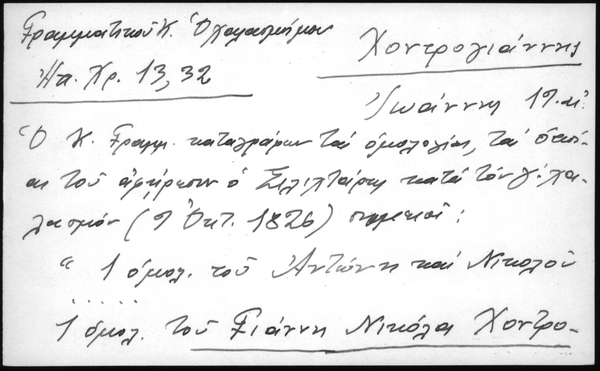 Γραμματικοῦ Κ. Ὁ χαλασμὸς μου
Ἠπ. Χρ. 13, 32
Χοντρογιάννης
Ἰωάννης 19. αἰ.
Ὁ Κ. Γραμμ. καταγράφων τὰς ὁμολογίας, τὰς ὁποί-
ας τοῦ ἀφῄρεσεν ὁ Σιλιχτάρης κατὰ τὸν γ΄ χα-
λασμόν (9 Ὀκτ. 1826) σημειοῖ:
" 1 ὁμολ. τοῦ Ἀντώνη καὶ Νικολοῦ
.....
1 ὁμολ. τοῦ Γιάννη Νικόλα Χοντρο-